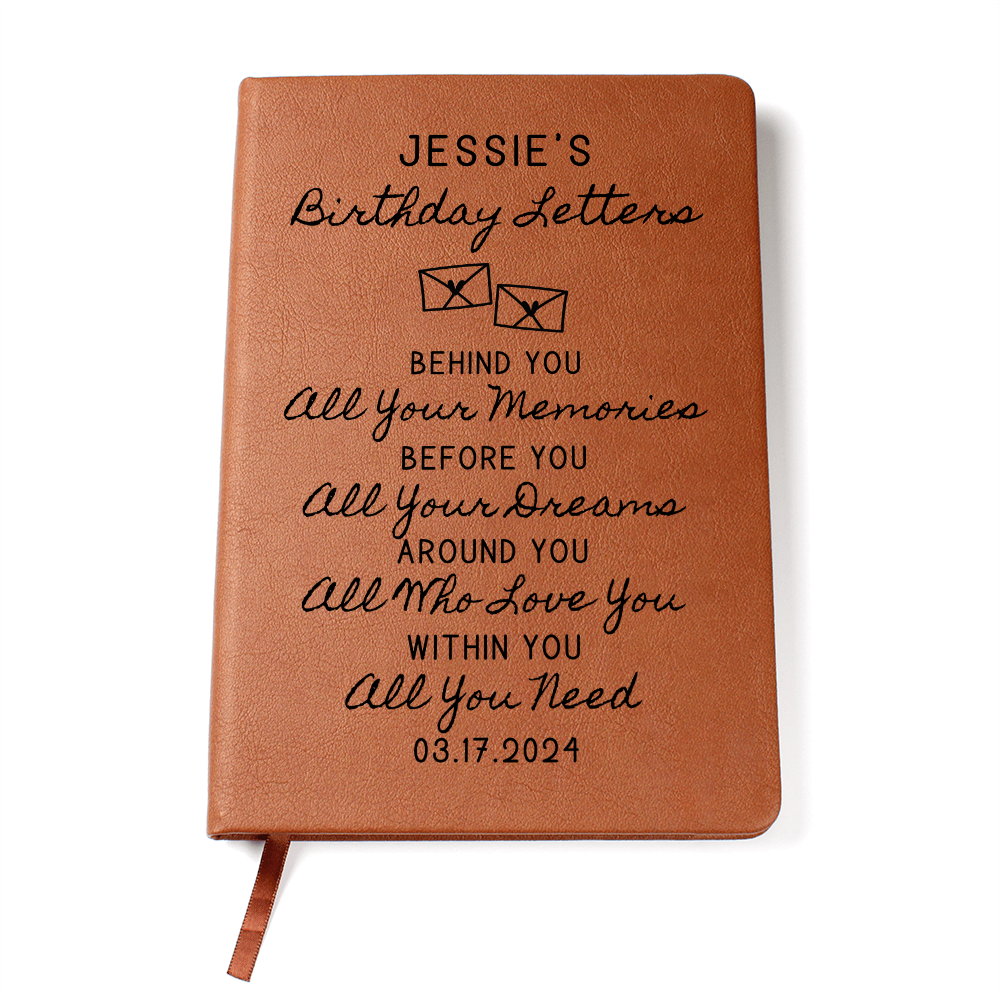 JESSIE'S
Birthday Letters
BEHIND YOU
All Your Memories
BEFORE YOU
All Your Dreams
AROUND YOU
All Who Love You
WITHIN YOU
All You Need
03.17.2024